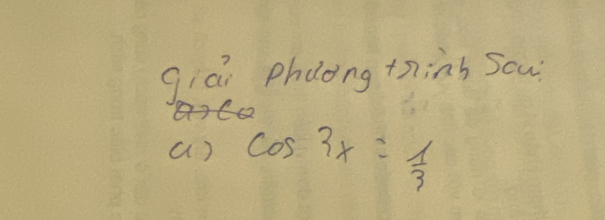 Giải phương trình sau:
a) Cos 3x = 1/3